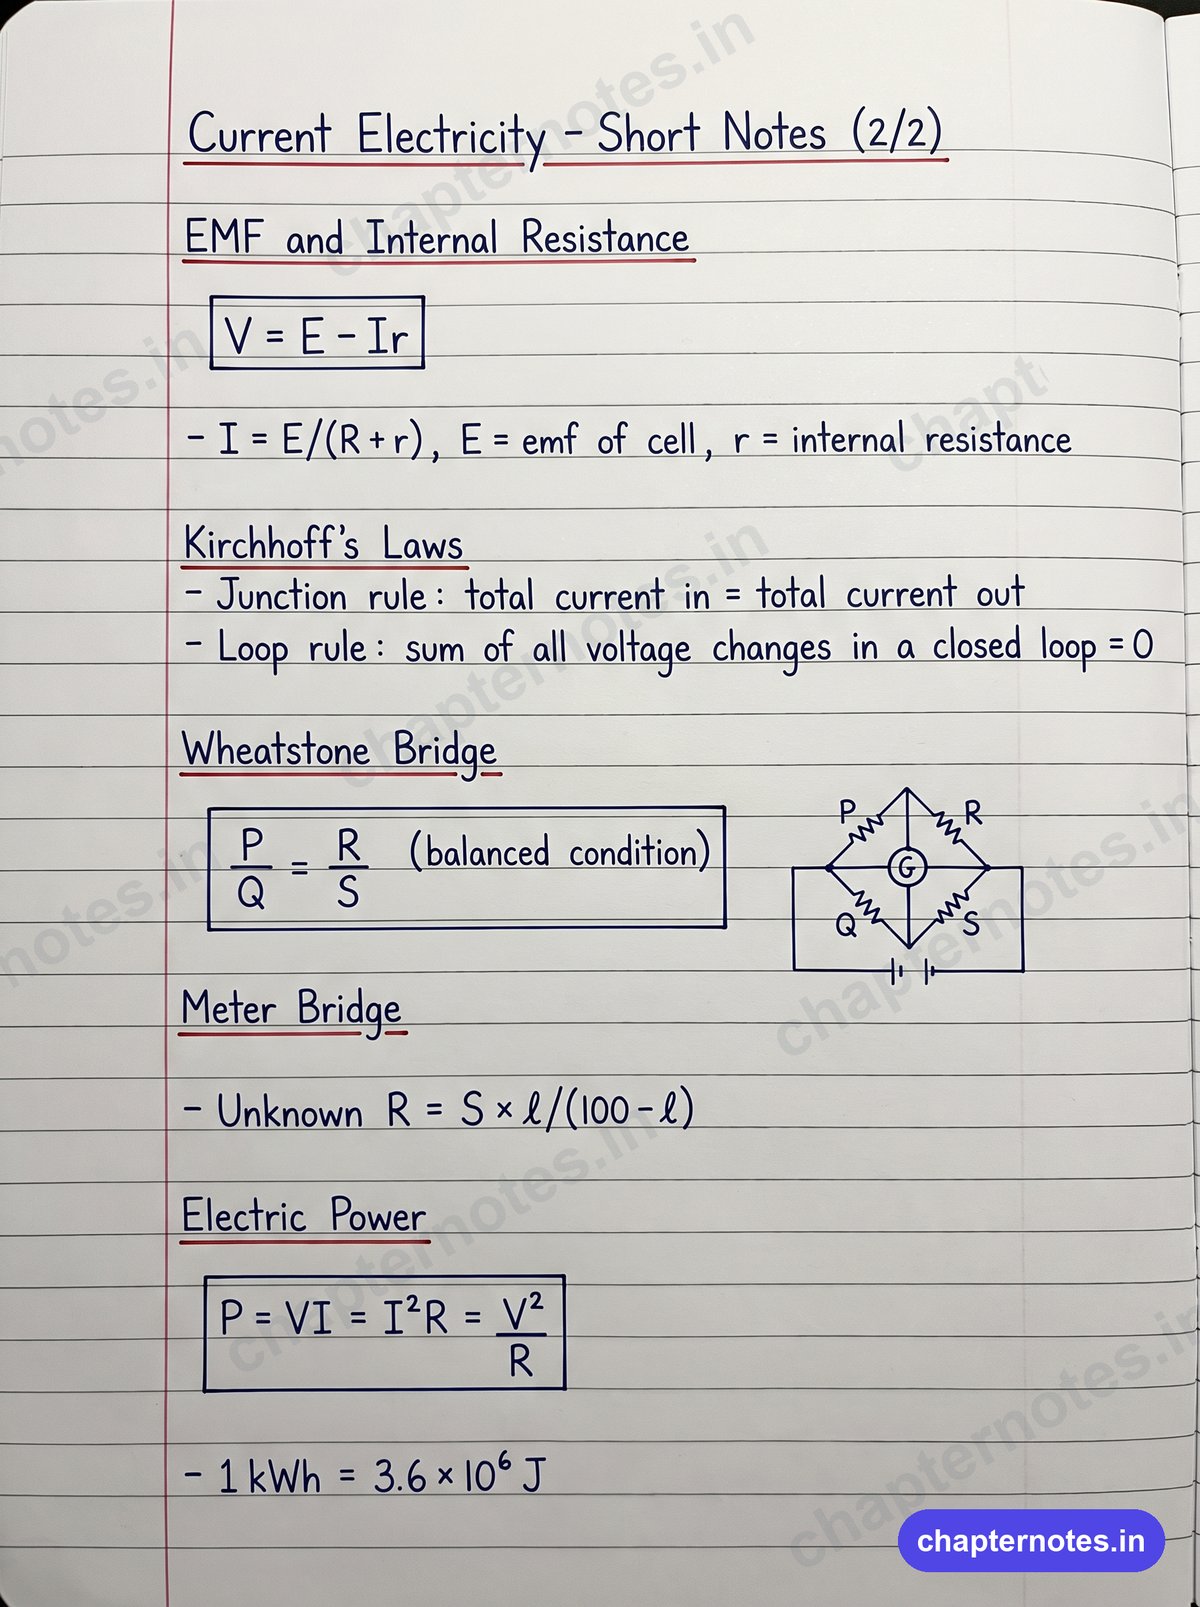 Current Electricity - Short Notes (2/2)
EMF and Internal Resistance
V = E - Ir
- I = E/(R + r), E = emf of cell, r = internal resistance
Kirchhoff's Laws
- Junction rule: total current in = total current out
- Loop rule: sum of all voltage changes in a closed loop = 0
Wheatstone Bridge
P/Q = R/S (balanced condition)
P R
G
Q S
Meter Bridge
- Unknown R = S × ℓ/(100 - ℓ)
Electric Power
P = VI = I²R = V²/R
- 1 kWh = 3.6 × 10⁶ J
chapternotes.in